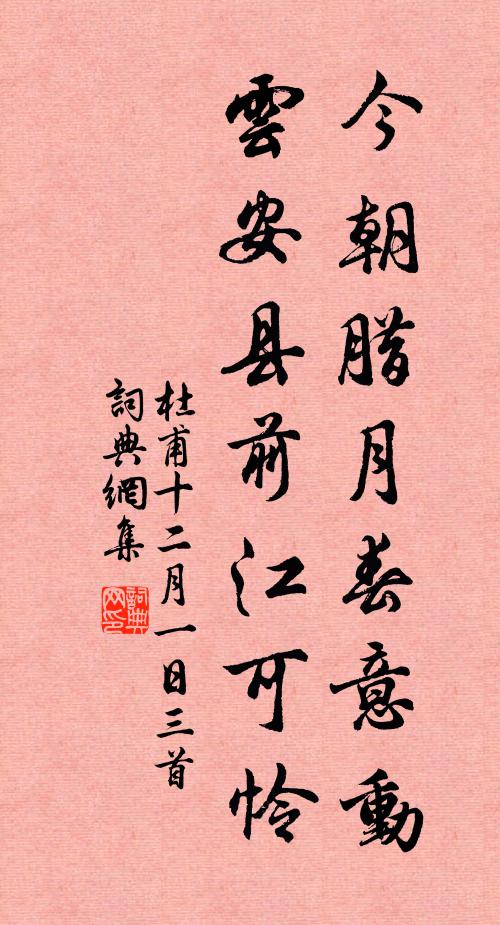 今朝腊月春意動
雲安县前江可怜
杜甫十二月一日三首
詞典網集
詞典
网印